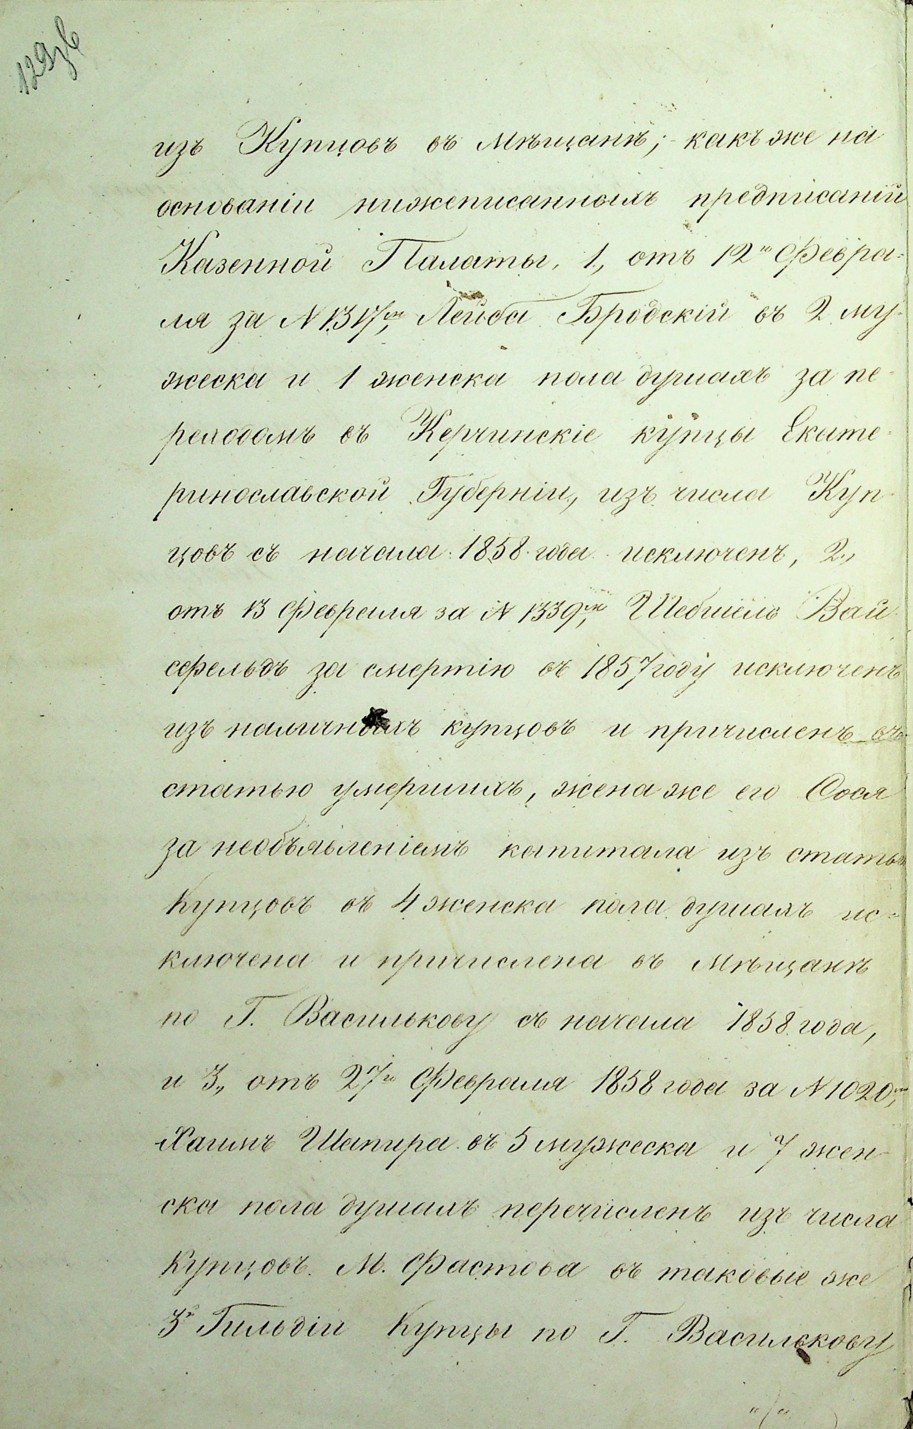 129 об
изъ Купцовъ въ Мѣщанѣ; какъ же на
основаніи нижеписанныхъ предписаній
Казенной Палаты, 1, отъ 12го Февра=
ля за N 1317мъ, Лейба Бродскій въ 2 му-
жеска и 1 женска пола душахъ за пе-
реходомъ въ Керчинскіе купцы Екате-
ринославской Губерніи, изъ числа Куп-
цовъ съ начала 1858 года исключенъ, 2,
отъ 13 Февраля за N 1339мъ, Шевшель Вай
сфельдъ за смертію въ 1857 году исключенъ
изъ наличныхъ купцовъ и причисленъ въ
статью умершихъ, жена же его Сося
за необъявленіемъ капитала изъ статьи
Купцовъ въ 4 женска пола душахъ ис=
ключена и причислена въ Мѣщанѣ
по Г. Василькову съ начала 1858 года,
и 3, отъ 27го Февраля 1858 года за N 1020мъ,
Хаимъ Шапира въ 5 мужеска и 7 жен-
ска пола душахъ перечисленъ изъ числа
Купцовъ М. Фастова въ таковые же
3й Гильдіи Купцы по Г. Василькову